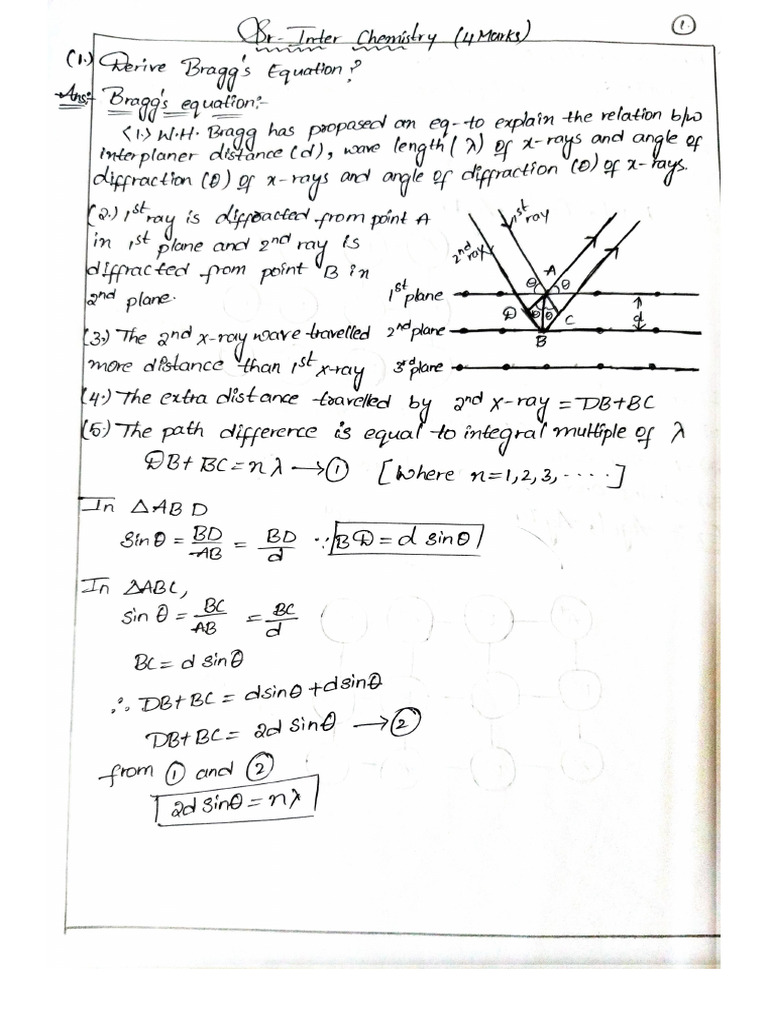 Sr. Inter Chemistry (4 Marks)
1.
(1.) Derive Bragg's Equation?
Ans:- Bragg's equation:-
(1.) W.H. Bragg has propased an eq- to explain the relation b/w
interplaner distance (d), wave length (λ) of x-rays and angle of
diffraction (θ) of x-rays and angle of diffraction (θ) of x-rays.
(2.) 1st ray is diffracted from point A
in 1st plane and 2nd ray is
diffracted from point B in
2nd plane.
(3.) The 2nd x-ray wave travelled
more distance than 1st x-ray
1st ray
2nd ray
A
θ θ
1st plane
D θ θ C
d
2nd plane
B
3rd plane
(4.) The extra distance travelled by 2nd x-ray = DB+BC
(5.) The path difference is equal to integral multiple of λ
DB+ BC = n λ → 1 [Where n=1,2,3, .....]
In △ABD
Sinθ = BD/AB = BD/d ∵ BD = d sinθ
In △ABC,
sin θ = BC/AB = BC/d
BC = d sinθ
∴ DB+BC = dsinθ+dsinθ
DB+BC = 2d sinθ → 2
from 1 and 2
2d sinθ = nλ